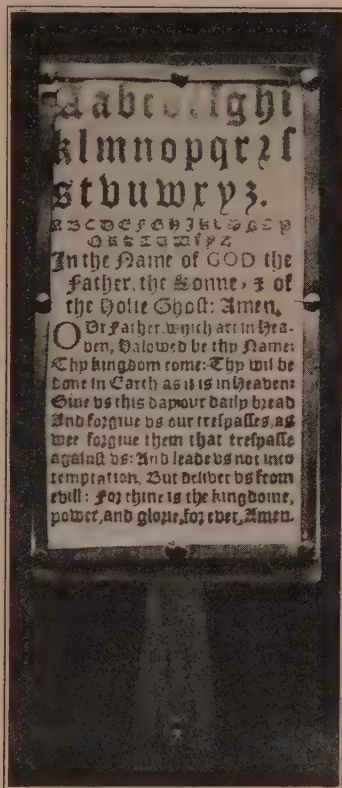 Aabcdefghi
klmnopqrꝛſ
stvuwxyz.
ABCDEFGHIKLMNOP
QRSTUWXYZ
In the Name of GOD the
Father, the Sonne, ⁊ of
the Holie Ghoſt: Amen.
OVr Father, which art in Hea-
ven, Halowed be thy Name:
Thy kingdom come: Thy wil be
done in Earth as it is in Heaven:
Giue vs this day our daily bread
And forgiue vs our treſpaſſes, as
wee forgiue them that treſpaſſe
againſt vs: And leade vs not into
temptation, But deliver vs from
evill: For thine is the kingdome,
power, and glorie, for ever, Amen.